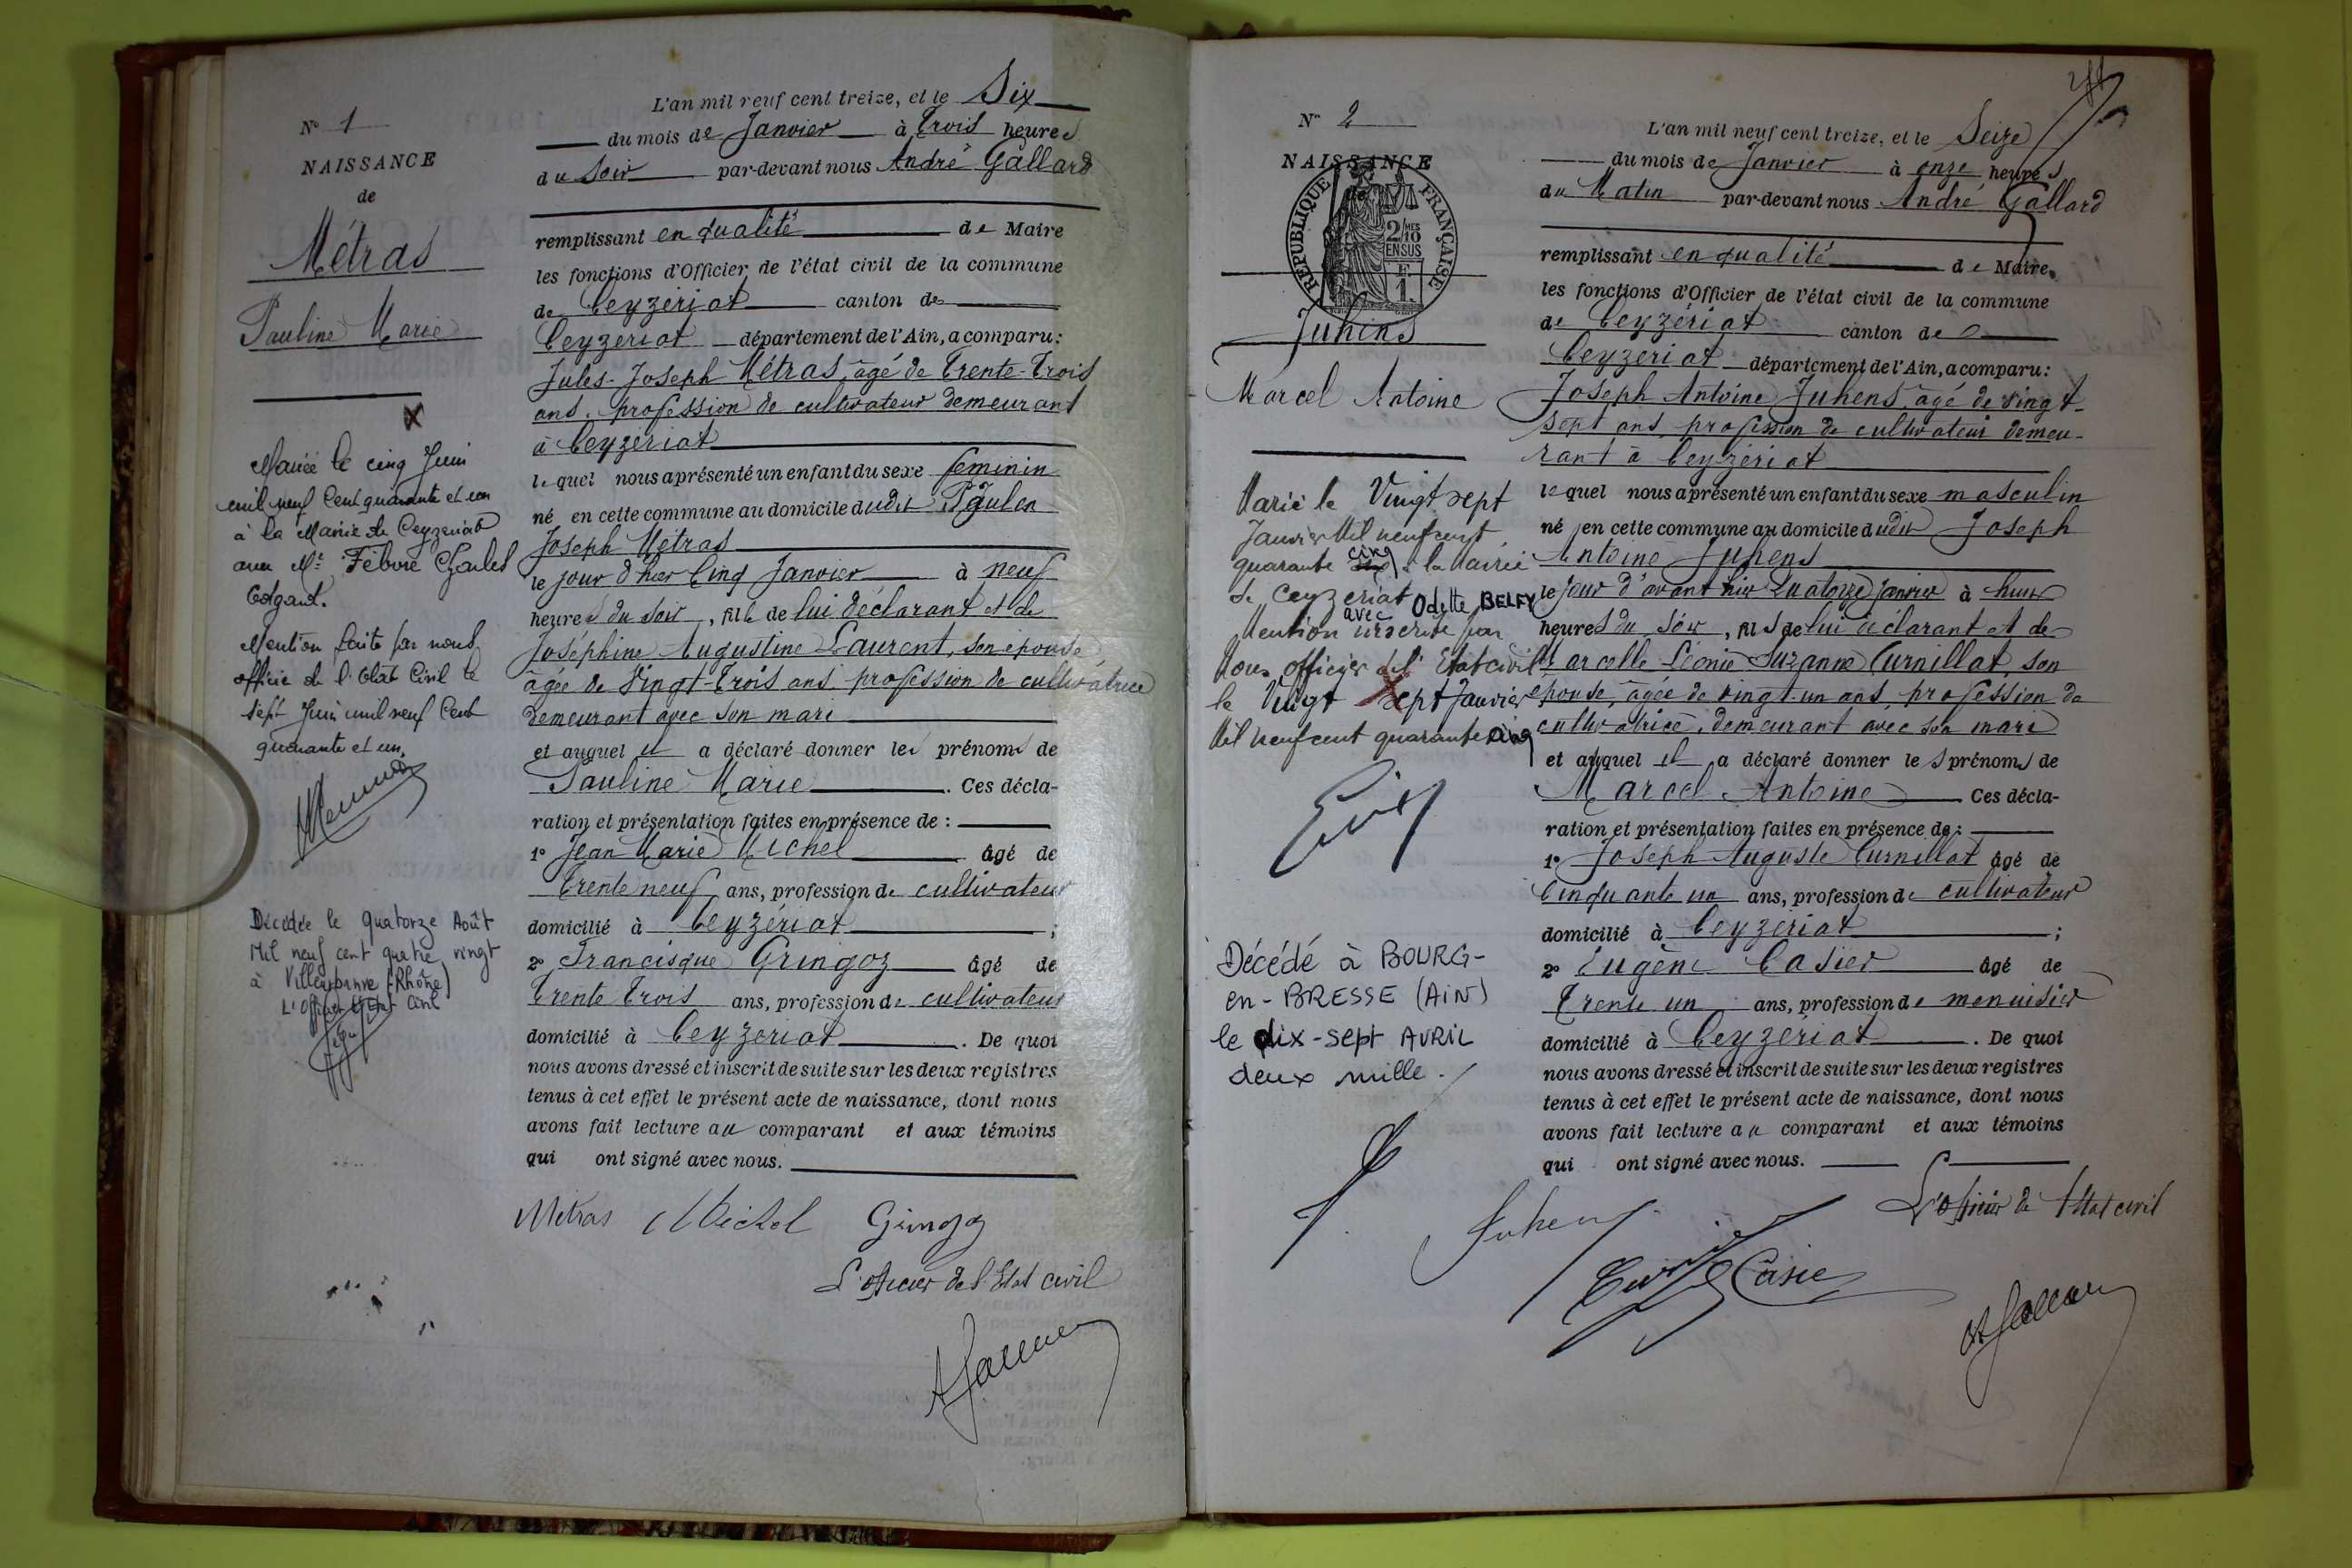 N° 1
NAISSANCE
de
Métras
Pauline Marie
Mariée le cinq Juin
mil neuf Cent quarante et un
à la Mairie de Ceyzeriat
avec Mr Febvre Charles
Mention faite par nous
officier de l'Etat Civil le
sept Juin mil neuf Cent
quarante et un.
Décédée le quatorze Août
Mil neuf cent quatre vingt
à Villeurbanne (Rhône)
L'Officier d'Etat Civil
L'an mil neuf cent treize, et le Six
du mois de Janvier à Trois heures
du Soir par-devant nous André Gallard
remplissant en qualité de Maire
les fonctions d'Officier de l'état civil de la commune
de Ceyzériat canton de
Ceyzeriat département de l'Ain, a comparu:
Jules-Joseph Métras, âgé de Trente-Trois
ans, profession de cultivateur demeurant
à Ceyzériat
lequel nous a présenté un enfant du sexe feminin
né en cette commune au domicile dudit
Joseph Métras
le jour d'hier Cinq Janvier à neuf
heures du soir, fille de lui déclarant et de
Joséphine Augustine Laurent, son épouse
âgée de Vingt-Trois ans, profession de cultivatrice
demeurant avec son mari
et auquel il a déclaré donner les prénoms de
Pauline Marie. Ces décla-
ration et présentation faites en présence de :
1° Jean Marie Michel âgé de
Trente neuf ans, profession de cultivateur
domicilié à Ceyzériat ;
2° Francisque Gringoz âgé de
Trente Trois ans, profession de cultivateur
domicilié à Ceyzériat. De quoi
nous avons dressé et inscrit de suite sur les deux registres
tenus à cet effet le présent acte de naissance, dont nous
avons fait lecture au comparant et aux témoins
qui ont signé avec nous.
Métras Michel Gringoz
L'officier de l'Etat civil
N° 2
NAISSANCE
REPUBLIQUE FRANÇAISE
2/10 MES
EN SUS
F.
1.
Juhens
Marcel Antoine
Marié le Vingt sept
Janvier Mil neuf cent
quarante cinq à la Mairie
de Ceyzeriat avec Odette BELFY
Mention inscrite par
Nous Officier de l'Etat civil
le Vingt sept Janvier
Mil neuf cent quarante cinq
Décédé à BOURG-
en-BRESSE (AIN)
le dix-sept AVRIL
deux mille.
L'an mil neuf cent treize, et le Seize
du mois de Janvier à onze heures
du Matin par-devant nous André Gallard
remplissant en qualité de Maire
les fonctions d'Officier de l'état civil de la commune
de Ceyzériat canton de
Ceyzériat département de l'Ain, a comparu:
Joseph Antoine Juhens, âgé de vingt-
sept ans, profession de cultivateur demeu-
rant à Ceyzériat
lequel nous a présenté un enfant du sexe masculin
né en cette commune au domicile dudit Joseph
Antoine Juhens
le jour d'avant hier Quatorze Janvier à huit
heures du Soir, fils de lui déclarant et de
Marcelle Léonie Suzanne Curnillat, son
épouse, âgée de vingt-un ans, profession de
cultivatrice, demeurant avec son mari
et auquel il a déclaré donner les prénoms de
Marcel Antoine Ces décla-
ration et présentation faites en présence de :
1° Joseph Auguste Curnillat âgé de
Cinquante un ans, profession de cultivateur
domicilié à Ceyzériat ;
2° Eugène Casier âgé de
Trente un ans, profession de menuisier
domicilié à Ceyzériat. De quoi
nous avons dressé et inscrit de suite sur les deux registres
tenus à cet effet le présent acte de naissance, dont nous
avons fait lecture au comparant et aux témoins
qui ont signé avec nous.
L'officier de l'Etat civil
Juhens
Casier